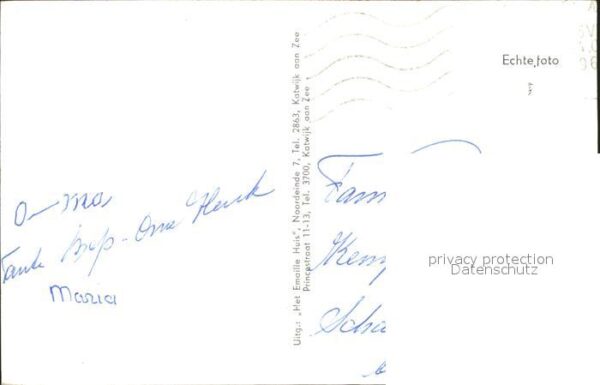 Echte foto
O-ma
Tante Bep - Ome Henk
Maria
Uitg.: „Het Emaille Huis", Noordeinde 7, Tel. 2863, Katwijk aan Zee
Princestraat 11-13, Tel. 3700, Katwijk aan Zee
Fam
Kemp
Scha
privacy protection
Datenschutz